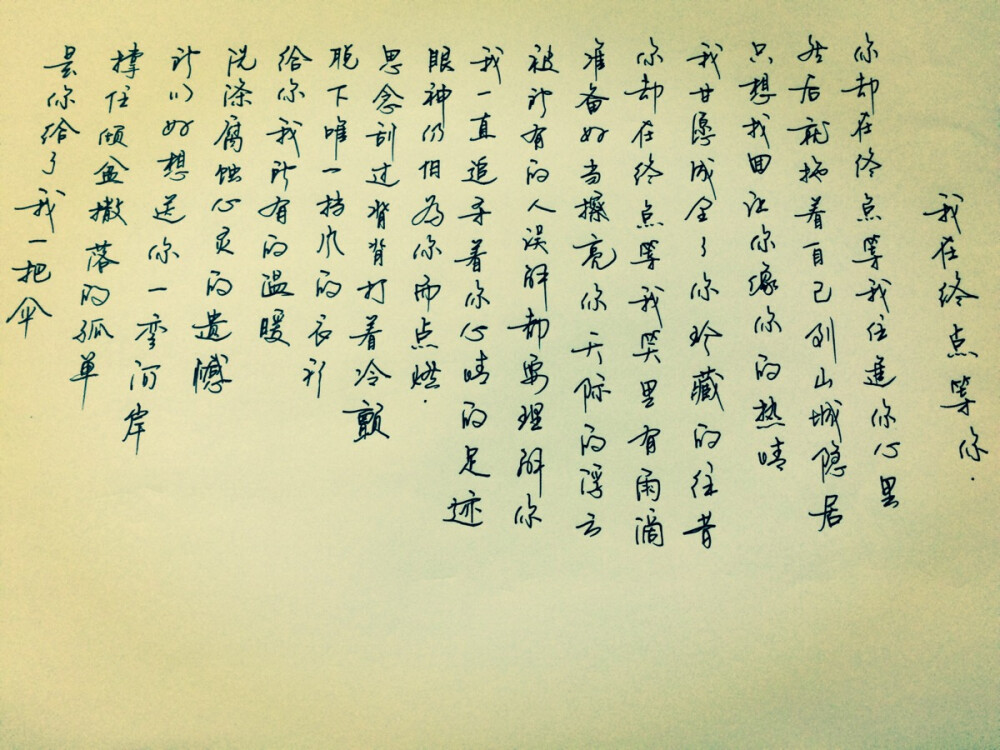 我在终点等你.
你却在终点等我住进你心里
然后就拖着自己到山城隐居
只想找回让你像你的热情
我甘愿成全了你珍藏的往昔
你却在终点等我哭里有雨滴
准备好当擦亮你天际的浮云
被所有的人误解都要理解你
我一直追寻着你心情的足迹
眼神仍旧为你而点燃.
思念刮过背脊打着冷颤
脱下唯一挡风的衣衫
给你我所有的温暖
洗涤腐蚀心灵的遗憾
所以好想送你一弯河岸
撑住倾盆撒落的孤单
是你给了我一把伞